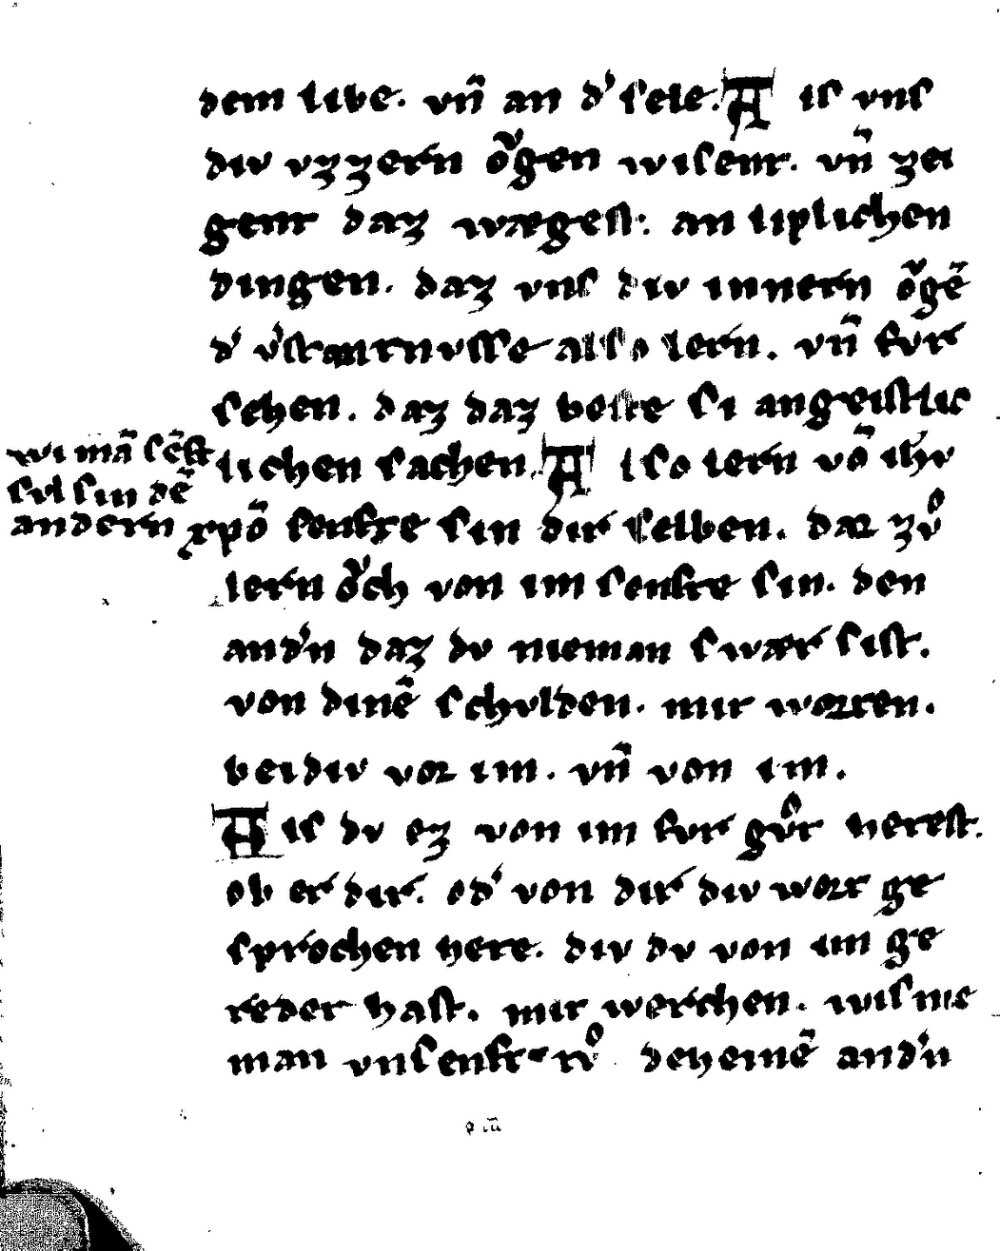 dem libe. vñ an d' sele. Als vns
div vzzern oͮgen wisent. vñ zei
gent daz wægest: an liplichen
dingen. daz vns div innern oͮgē
d' v'stantnusse also lern. vñ fvr
sehen. daz daz beste si an geistlic
lichen sachen. Also lern vō ih̄v
xpō senfte sin dir selben. dar zvͦ
lern oͮch von im senfte sin. den
and'n daz dv nieman swær sist.
von dinē schvlden. mit worten.
beidiv vor im. vñ von im.
Als dv ez von im fvr gvͦt hetest.
ob er dir. od' von dir div wort ge
sprochen hete. div dv von im ge
redet hast. mit werchen. wis nie
man vnsenft dehemē and'n
wi mā sēft
svl sin dē
andern